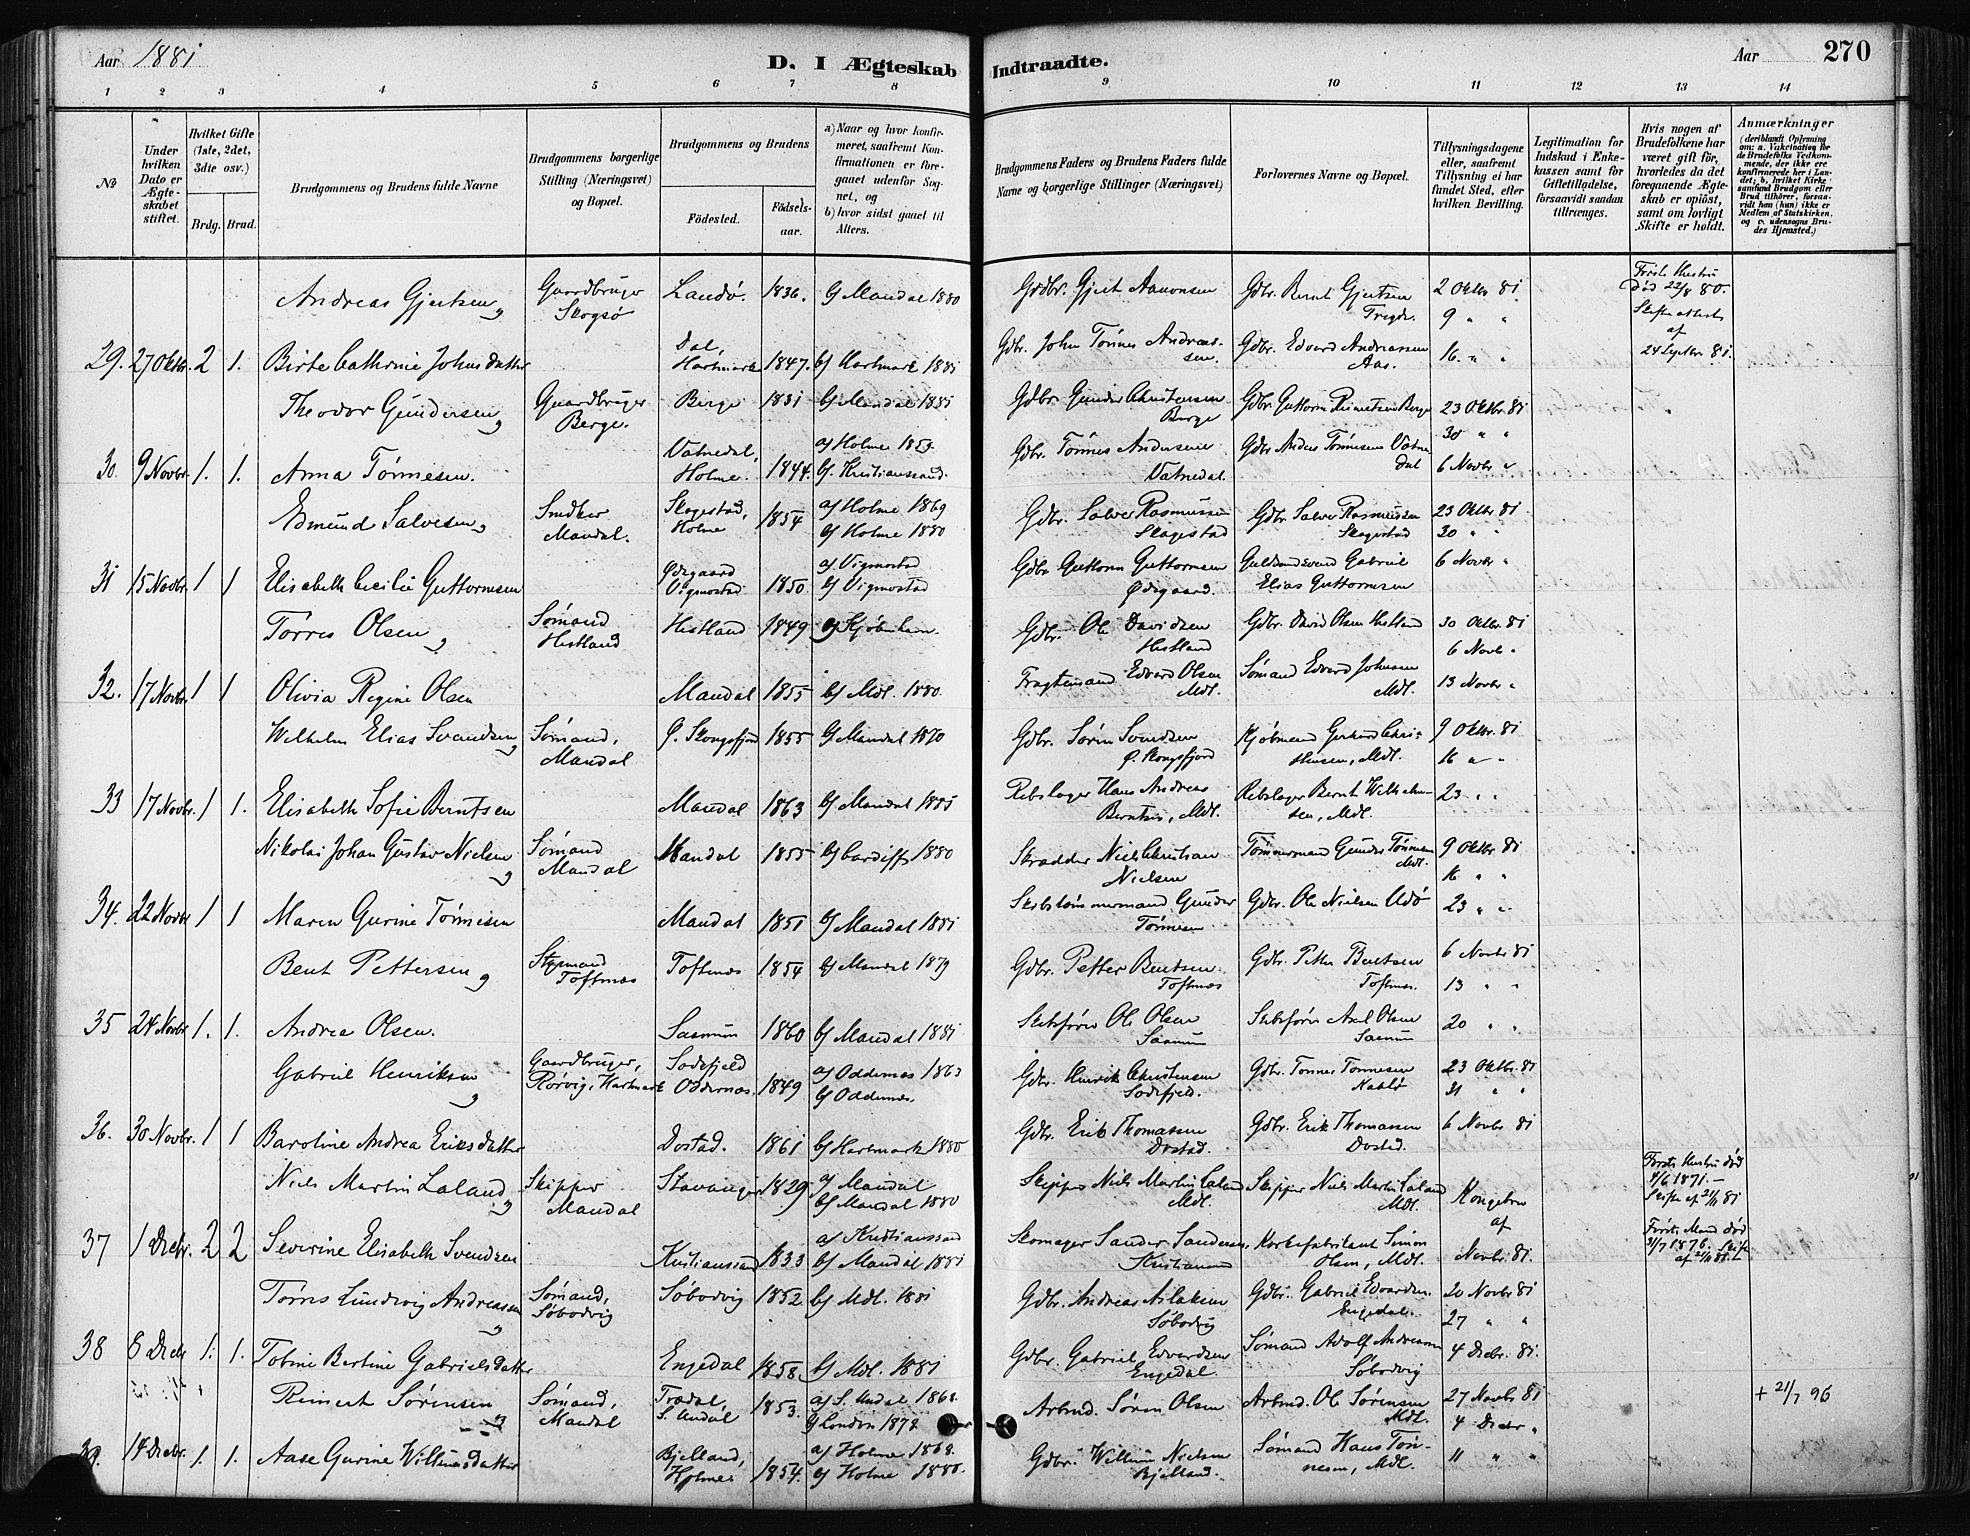 Aar 1881
D. I Ægteskab Indtraadte.
Aar
270
1 2 3 4 5 6 7 8 9 10 11 12 13 14
No
Under hvilken Dato er Ægteskabet stiftet.
Hvilket Gifte (1ste, 2det, 3die osv.)
Brdg. Brud.
Brudgommens og Brudens fulde Navne
Brudgommens borgerlige Stilling (Næringsvei) og Bopæl.
Brudgommens og Brudens
Födested.
Födsels-aar.
a) Naar og hvor konfirmeret, saafremt Konfirmationen er foregaaet udenfor Sognet, og
b) hvor sidst gaaet til Alters.
Brudgommens Faders og Brudens Faders fulde Navne og borgerlige Stillinger (Næringsvei)
Forlovernes Navne og Bopæl.
Tillysningsdagene eller, saafremt Tillysning ei har fundet Sted, efter hvilken Bevilling.
Legitimation for Indskud i Enkekassen samt for Giftetilladelse, forsaavidt saadan tiltrænges.
Hvis nogen af Brudefolkene har været gift för, hvorledes da det foregaaende Ægteskab er oplöst, samt om lovligt Skifte er holdt.
Anmærkninger (deriblandt Oplysning om: a. Vakcination for de Brudefolks Vedkommende, der ikke ere konfirmerede her i Landet; b. hvilket Kirkesamfund Brudgom eller Brud tilhörer, forsaavidt han (hun) ikke er Medlem af Statskirken, og c. udensogns Brudes Hjemsted.)
Andreas Gjertsen, Gaardbruger Skogsö Landö. 1836. b) Mandal 1880 Grdbr. Gjert Aanonsen Gdbr. Bernt Gjertsen Tregde. 2 Oktbr 81 9 " " Förste Hustru Död 22/8 80. Skifteattest af 24 Septbr. 81.
29. 27 Oktbr. 2 1. Birte Cathrine Johnsdatter Dal, Hartmark 1847. b) Hartmark 1881 Gdbr. John Tönnes Andreassen. Gdbr. Edvard Andreassen Aas. 16. " "
Theodor Gundersen, Gaardbruger Berge. Berge 1831 b) Mandal 1881 Gdbr. Gunder Christensen Berge Gdbr. Guttorm Reinertsen Berge 23 Oktbr. 81 30 " "
30. 9 Novbr. 1. 1. Anna Tönnesen. Vatnedal, Holme. 1844. a) Holme 1859. b) Kristianssand. Gdbr. Tönnes Andersen Vatnedal. Gdbr. Anders Tönnesen Vatnedal 6 Novbr "
Edmund Salvesen, Snedker Mandal. Skogestad, Holme 1854 a) Holme 1869 b) Holme 1880 Gdbr. Salve Rasmussen Skogestad Gdbr. Salve Rasmussen Skogestad 23 Oktbr 81 30 " "
31 15 Novbr. 1 1 Elisabeth Cecilie Guttormsen Ödegaard Vigmostad 1850 a) Vigmostad b) Vigmostad Gdbr. Guttorm Guttormsen Ödegaard. Guldsmedsvend Gabriel Elias Guttormsen 6 Novbr "
Torres Olsen, Sömand Hestland Hestland 1849 b) Kjöbenhavn. Gdbr. Ole Davidsen Hestland Gdbr. David Olsen Hestland 30 Oktbr. 81 6 Novbr "
32. 17 Novbr. 1 1 Olivia Regine Olsen Mandal 1855 b) Mdl. 1880. Fragtemand Edvard Olsen Mdl. Sömand Edvard Johnsen Mdl. 13 Novbr "
Wilhelm Elias Svendsen, Sömand, Mandal Ö. Skongsfjord 1855 b) Mandal 1870 Gdbr. Sören Svendsen Ö. Skongsfjord Kjöbmand Gerhard Christensen, Mdl. 9 Oktbr. 81 16 " "
33 17 Novbr. 1 1. Elisabeth Sofie Berntsen Mandal 1863 b) Mandal 1881 Rebslager Hans Andreas Berntsen, Mdl. Rebslager Bernt Wilhelmsen, Mdl. 23 " "
Nikolai Johan Gustav Nielsen, Sömand Mandal Mandal 1855 b) Cardiff 1880 Skrædder Niels Christian Nielsen Tömmermand Gunder Tönnesen Mdl. 9 Oktbr 81 16 " "
34. 22 Novbr 1 1 Maren Gurine Tönnesen Mandal 1851 b) Mandal 1881 Skibstömmermand Gunder Tönnesen Gdbr. Ole Nielsen Udö 23 " "
Bent Pettersen, Styrmand Toftnæs Toftnæs 1854 b) Mandal 1879 Gdbr. Petter Bentsen Toftnæs Gdbr. Petter Bentsen Toftnæs. 6 Novbr 81 13 " "
35 24 Novbr 1. 1. Andrea Olsen. Sannum 1860 b) Mandal 1881 Skibsförer Ole Olsen Sannum Skibsförer Axel Olsen Sannum 20 " "
Gabriel Henriksen, Gaardbruger, Rörvig, Hartmark Sodefjeld Oddernæs. 1849 a) Oddernæs 1863 b) Oddernæs. Gdbr. Henrik Christensen Sodefjeld. Gdbr. Tönnes Tönnesen 23 Oktbr. 81 31 " "
36. 30 Novbr. 1 1 Baroline Andrea Eriksdatter Dostad. 1861 b) Hartmark 1880 Gdbr. Erik Thomassen Dostad. Gdbr. Erik Thomassen Dostad. 6 Novbr 81
Niels Martin Laland, Skipper Mandal Stavanger 1829 a) Mandal b) Mandal 1880 Skipper Niels Martin Laland Mdl. Skipper Niels Martin Laland Mdl. Kongebrev af Novbr. 81. Förste Hustru död 4/6 1871. – Skifte af 21/11 81
37 1 Decbr. 2 2 Severine Elisabeth Svendsen Kristianssand 1833 a) Kristianssand b) Mandal 1881 Skomager Sander Sandersen, Kristianssand Korkefabrikant Simon Olsen, Mdl. Förste Mand död 21/7 1876. Skifte af 21/11 81.
Törres Lundvig Andreassen, Sömand, Söbodvig Söbodvig 1852. b) Mdl. 1881 Gdbr. Andreas Aslaksen Söbodvig Gdbr. Gabriel Edvardsen Engedal. 20 Novbr 81 27 " "
38 8 Decbr 1. 1. Tobine Bertine Gabrielsdatter Engedal 1858. b) Mdl. 1881 Gdbr. Gabriel Edvardsen Engedal. Sömand Adolf Andreassen Söbodvig 4 Decbr. 81.
Reinert Sörensen, Sömand, Mandal Trædal, S. Undal 1853. a) S. Undal 1868. b) London 1878. Arbmd. Sören Olsen Arbmd. Ole Sörensen Mdl. 27 Novbr 81 4 Decbr " + 21/7 96
39. 14 Decbr. 1. 1. Aase Gurine Willumsdatter Bjelland, Holmes 1854. a) Holme 1868. b) Holme 1880. Gdbr. Willum Nielsen Bjelland. Sömand Hans Tönnesen, Mdl. 11 " "